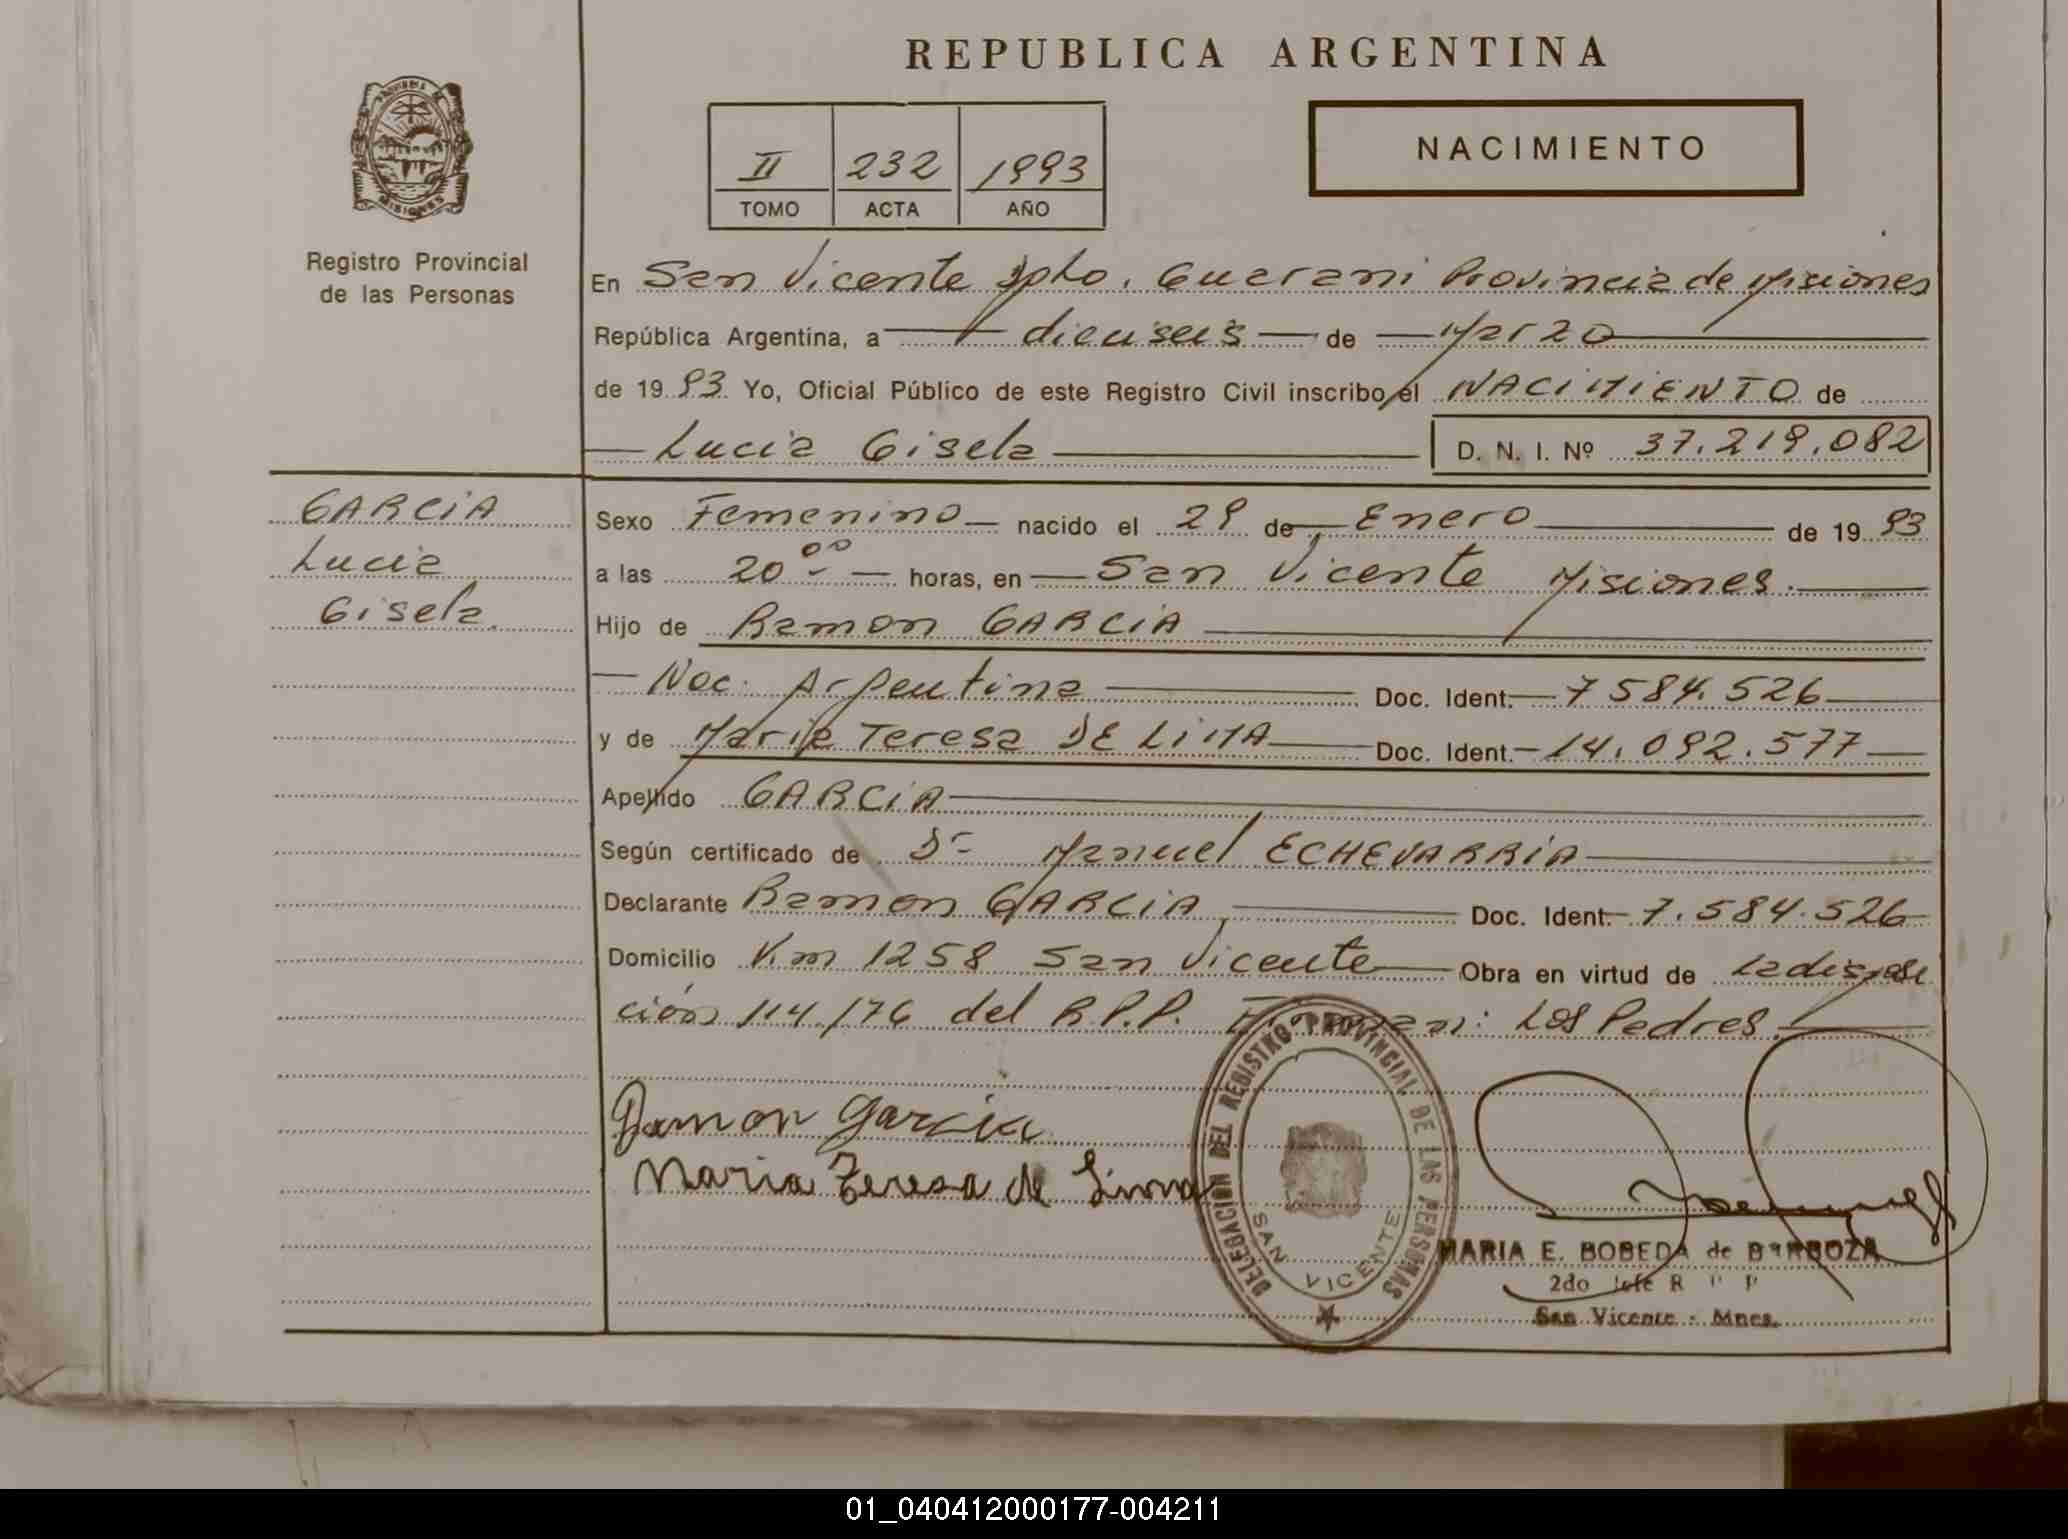 REPUBLICA ARGENTINA
II 232 1993
TOMO ACTA AÑO
NACIMIENTO
MISIONES
Registro Provincial
de las Personas
En San Vicente Dpto. Guarani Provincia de Misiones
República Argentina, a dieciseis de Marzo
de 1993 Yo, Oficial Público de este Registro Civil inscribo el NACIMIENTO de
Lucia Gisela D. N. I. Nº 37.219.082
GARCIA
Lucia
Gisela
Sexo Femenino nacido el 29 de Enero de 1993
a las 20 00 horas, en San Vicente Misiones.
Hijo de Ramon GARCIA
Nac. Argentina Doc. Ident. 7584.526
y de Maria Teresa DE LIMA Doc. Ident. 14.092.577
Apellido GARCIA
Según certificado de Dr Manuel ECHEVARRIA
Declarante Ramon GARCIA Doc. Ident. 7.584.526
Domicilio Km 1258 San Vicente Obra en virtud de la disposi
ción 114/76 del R.P.P. Firman: Los Padres.
Ramon Garcia
Maria Teresa de Lima
DELEGACION DEL REGISTRO PROVINCIAL DE LAS PERSONAS
SAN VICENTE
MARIA E. BOBEDA de BARBOZA
2do Jefe R P P
San Vicente - Mnes.
01_040412000177-004211